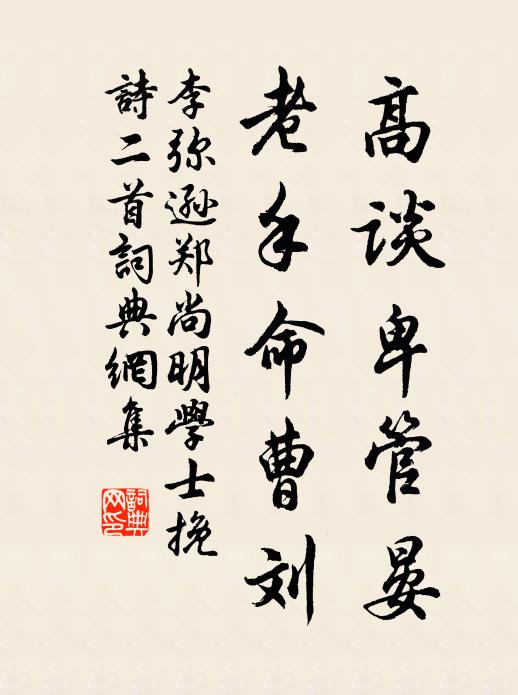 高談卑管晏
老手命曹刘
李弥遜郑尚明學士挽
詩二首詞典網集
詞典
网印